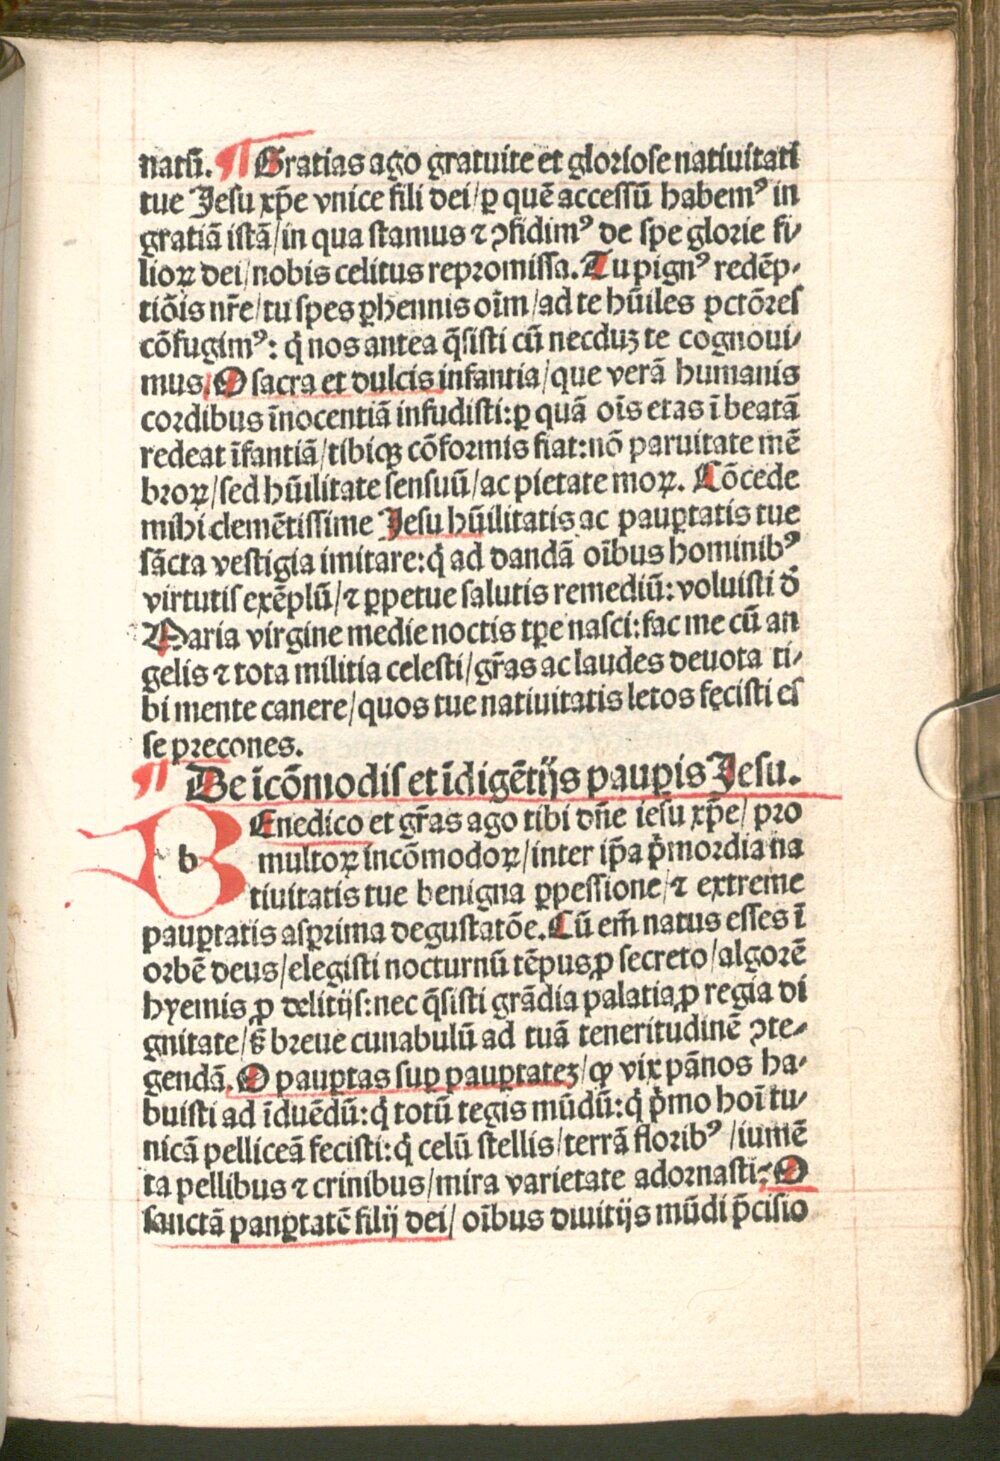 natū. ¶ Gratias ago gratuite et gloriose nativitati
tue Jesu xp̄e vnice fili dei/ ꝑ quē accessū habemꝰ in
gratiā istā/ in qua stamus ⁊ ꝯfidimꝰ de spe glorie fi/
lioꝝ dei/ nobis celitus repromissa. Tu pignꝰ redēp-
tiōis nr̄e/ tu spes ꝑhennis oīm/ ad te hūiles pctōres
cōfugimꝰ: q̇ nos antea q̄sisti cū necduꝫ te cognoui/
mus. O sacra et dulcis infantia/ que verā humanis
cordibus īnocentiā infudisti: ꝑ quā oīs etas ī beatā
redeat īfantiā/ tibiqꝫ cōformis fiat: nō paruitate mē
broꝝ/ sed hūilitate sensuū/ ac pietate moꝝ. Cōcede
mihi clemētissime Jesu hūilitatis ac pauꝑtatis tue
sācta vestigia imitare: q̇ ad dandā oībus hominibꝰ
virtutis exēplū/ ⁊ ꝑpetue salutis remediū: voluisti ď
Maria virgine medie noctis tꝑe nasci: fac me cū an
gelis ⁊ tota militia celesti/ gr̄as ac laudes deuota ti/
bi mente canere/ quos tue natiuitatis letos fecisti es
se precones.
¶ De īcōmodis et īdigētijs pauꝑis Jesu.
b BEnedico et gr̄as ago tibi dn̄e iesu xp̄e/ pro
multoꝝ incōmodoꝝ/ inter ip̄a p̄mordia na
tiuitatis tue benigna ꝑpessione/ ⁊ extreme
pauꝑtatis asꝑrima degustatōe. Cū em̄ natus esses ī
orbē deus/ elegisti nocturnū tēpus, ꝓ secreto/ algorē
hyemis, ꝓ delitijs: nec q̄sisti grādia palatia, ꝓ regia di
gnitate/ sꝫ breue cunabulū ad tuā teneritudinē ꝯte-
gendā. O pauꝑtas suꝑ pauꝑtateꝫ/ ꝙ vix pānos ha-
buisti ad īduēdū: q̇ totū tegis mūdū: q̇ p̄mo hoī tu/
nicā pelliceā fecisti: q̇ celū stellis/ terrā floribꝰ /iumē
ta pellibus ⁊ crinibus/ mira varietate adornasti: O
sanctā panꝑtatē filij dei/ oībus diuitijs mūdi p̄cisio